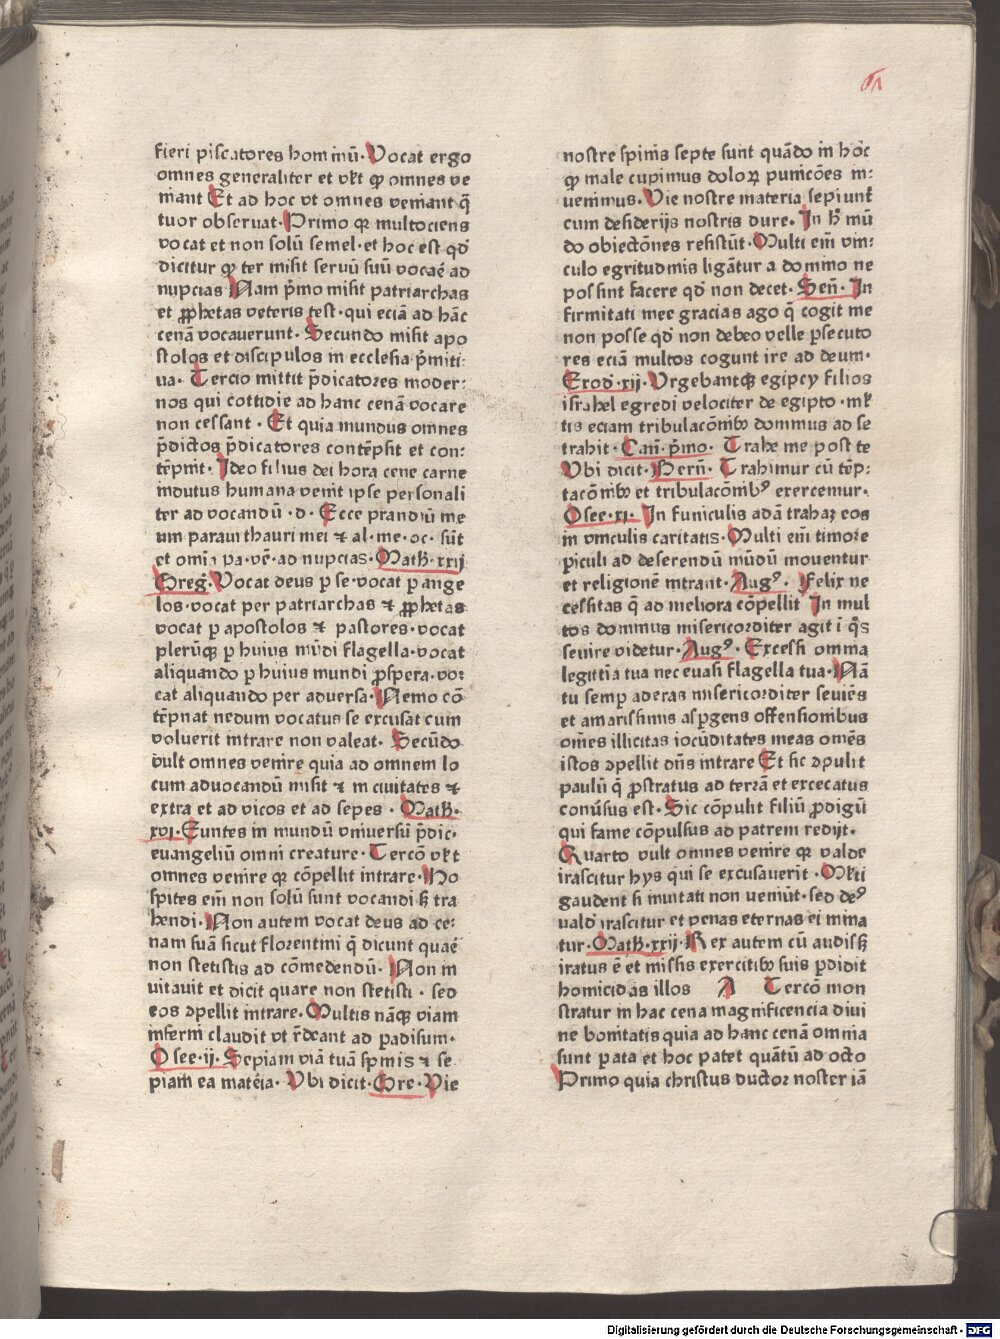 61
fieri piscatores hominū. Vocat ergo
omnes generaliter et vłt ꝙ omnes ve
niant Et ad hoc vt omnes veniant q̄
tuor obseruat. Primo qꝛ multociens
vocat et non solū semel. et hoc est qđ
dicitur ꝙ ter misit seruū suū vocaē ad
nupcias Nam p̄mo misit patriarchas
et ꝓphetas veteris test. qui eciā ad hāc
cenā vocauerunt. Secundo misit apo
stolos et discipulos in ecclesia p̄miti
ua. Tercio mittit p̄dicatores moder:
nos qui cottidie ad hanc cenā vocare
non cessant. Et quia mundus omnes
p̄dictos p̄dicatores contēpsit et con:
tēpnit. Ideo filius dei hora cene carne
indutus humana venit ipse personali
ter ad vocandū .d. Ecce prandiū me
um paraui thauri mei ⁊ al. me. oc. sūt
et omīa pa. vē. ad nupcias. Math. xxij
Greḡ. Vocat deus ꝑ se. vocat ꝑ ange
los. vocat per patriarchas ⁊ ꝓphetas
vocat ꝑ apostolos ⁊ pastores. vocat
plerūqꝫ ꝑ huius mūdi flagella. vocat
aliquando ꝑ huius mundi ꝓspera. vo:
cat aliquando per aduersa. Nemo cō
tēpnat nedum vocatus se excusat cum
voluerit intrare non valeat. Secūdo
vult omnes venire quia ad omnem lo
cum aduocandū misit ⁊ in ciuitates ⁊
extra et ad vicos et ad sepes. Math.
xvi. Euntes in mundū vniuersū p̄dic.
euangeliū omni creature. Tercō vłt
omnes venire qꝛ cōpellit intrare. Ho
spites em̄ non solū sunt vocandi sꝫ tra
hendi. Non autem vocat deus ad ce:
nam suā sicut florentini q̄ dicunt quaē
non stetistis ad cōmedendū. Non in
uitauit et dicit quare non stetisti. sed
eos ꝯpellit intrare. Multis nāqꝫ viam
inferni claudit vt r̄deant ad ꝑadisum.
Osee. ij. Sepiam viā tuā spinis ⁊ se.
piam ea mat̄ia. Vbi dicit. Gre. Vie
nostre spinis septe sunt quādo in hoc
ꝙ male cupimus doloꝝ punicōes in:
uenimus. Vie nostre materia sepiunt̄
cum desiderijs nostris dure. In h̄ mū
do obiectōnes resistūt. Multi em̄ vin:
culo egritudinis ligātur a domino ne
possint facere qđ non decet. Sen̄. In
firmitati mee gracias ago q̄ cogit me
non posse qđ non debeo velle ꝑsecuto
res eciā multos cogunt ire ad deum.
Exod. xij. Vrgebantqꝫ egipcy filios
israhel egredi velociter de egipto. mł
tis eciam tribulacōnibꝰ dominus ad se
trahit. Can̄. p̄mo. Trahe me post te
Vbi dicit. Bern̄. Trahimur cū tēp:
tacōnibꝰ et tribulacōnibꝰ exercemur.
Osee. xi. In funiculis adā trahaꝫ eos
in vinculis caritatis. Multi em̄ timore
ꝑiculi ad deserendū mūdū mouentur
et religionē intrant. Augꝰ. Felix ne
cessitas q̄ ad meliora cōpellit In mul
tos dominus misericorditer agit ī q̄s
seuire videtur. Augꝰ. Excessi omnia
legittīa tua nec euasi flagella tua. Nā
tu semꝑ aderas misericorditer seuiēs
et amarissimis asꝑgens offensionibus
om̄es illicitas iocūditates meas om̄es
istos ꝯpellit dn̄s intrare Et sic ꝯpulit
paulū q̄ ꝓstratus ad terrā et excecatus
conūsus est. Sic cōpulit filiū ꝓdigū
qui fame cōpulsus ad patrem redijt.
Quarto vult omnes venire qꝛ valde
irascitur hys qui se excusauerit. Młti
gaudent si inuitati non veniūt. sed deꝰ
vald̄ irascitur et penas eternas ei mina
tur. Math. xxij. Rex autem cū audisꝫ
iratus ē et missis exercitibꝰ suis ꝑdidit
homicidas illos A Tercō mon
stratur in hac cena magnificencia diui
ne bonitatis quia ad hanc cenā omnia
sunt ꝑata et hoc patet quātū ad octo
Primo quia christus ductor noster iā
Digitalisierung gefördert durch die Deutsche Forschungsgemeinschaft - DFG